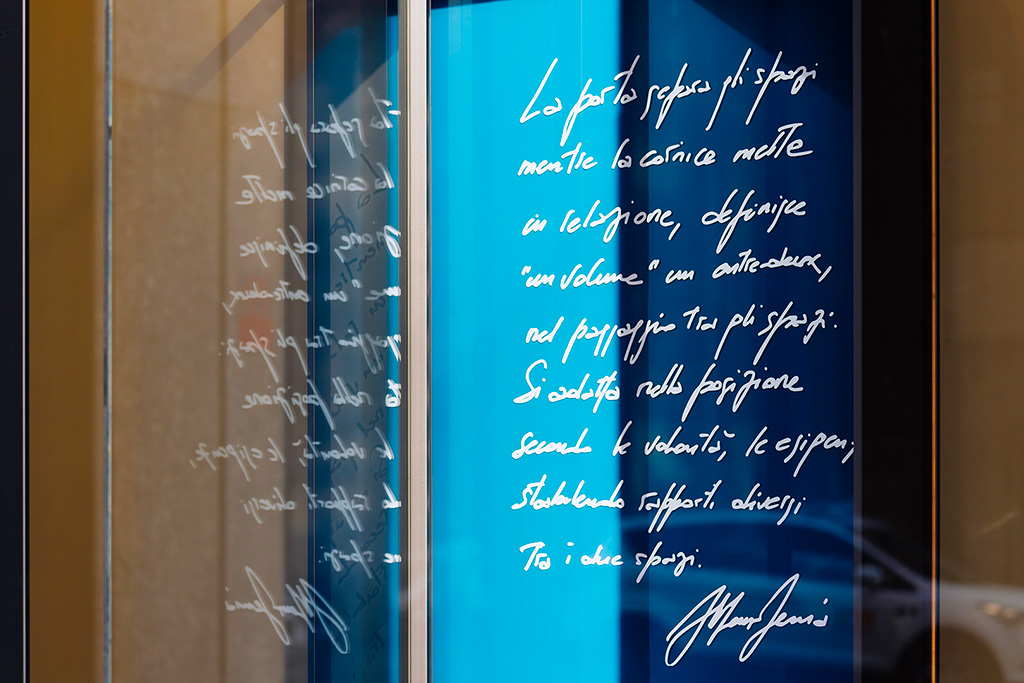 La porta separa gli spazi
mentre la cornice mette
in relazione, definisce
"un volume" un entre-deux,
nel passaggio tra gli spazi.
Si adatta nella posizione
secondo le volontà, le esigenze,
stabilendo rapporti diversi
Tra i due spazi.